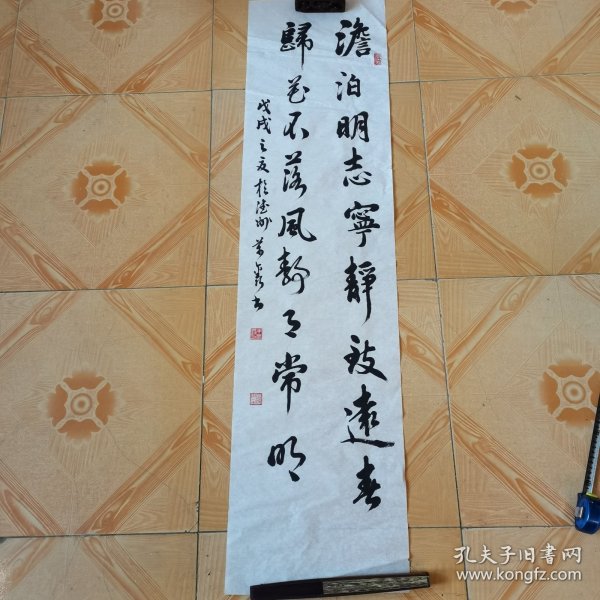 澹泊明志寧静致遠春
歸花不落風静月常明
戊戌之夏於德州
書
孔夫子旧书网
www.kongfz.com